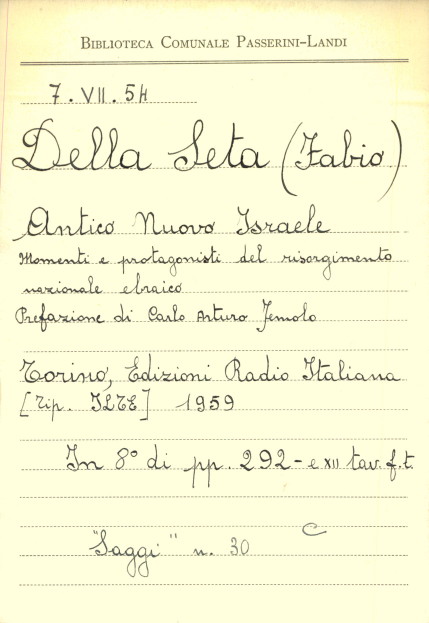 BIBLIOTECA COMUNALE PASSERINI-LANDI
7. VII. 5H
Della Seta (Fabio)
Antico Nuovo Israele
Momenti e protagonisti del risorgimento
nazionale ebraico
Prefazione di Carlo Arturo Jemolo
Torino, Edizioni Radio Italiana
[tip. ILTE] 1959
In 8° di pp. 292 - e XII tav. f. t.
C
"Saggi" n. 30